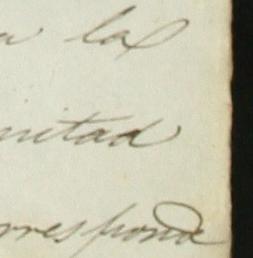 la
mitad
rresponde